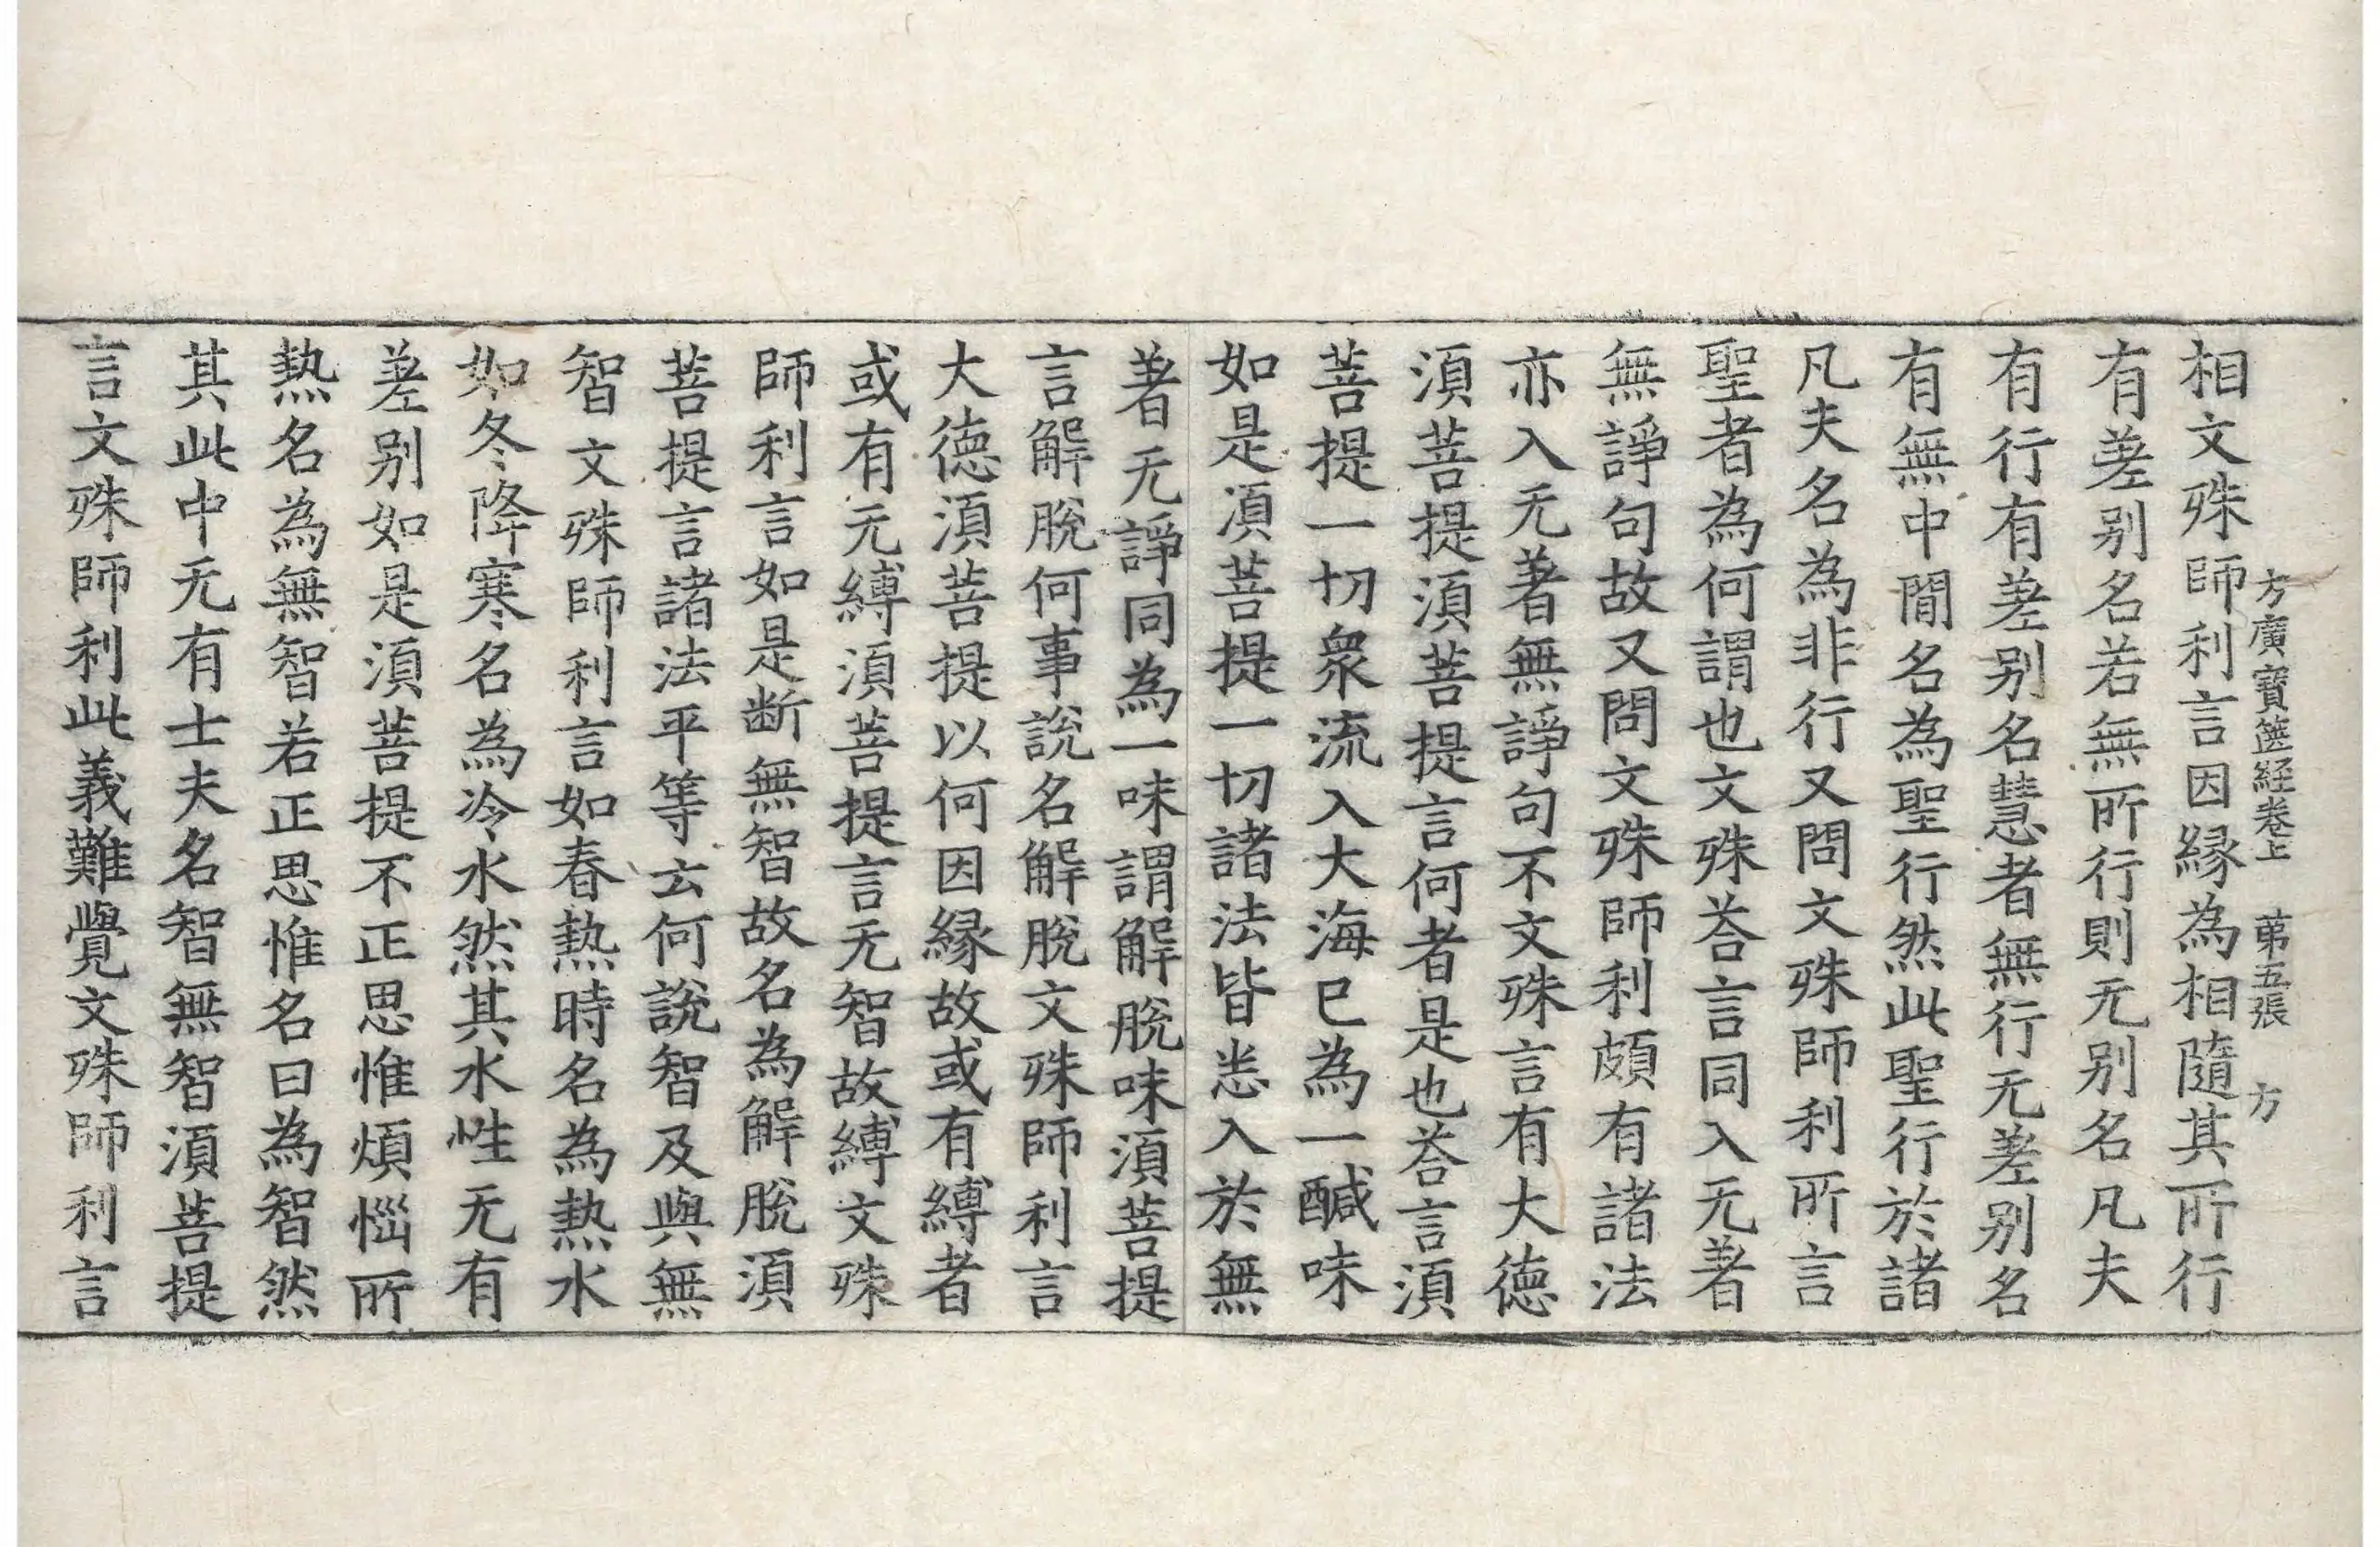 方廣寶篋経卷上 苐五張 方
相文殊師利言因縁為相隨其所行
有差别名若無所行則无别名凡夫
有行有差别名慧者無行无差别名
有無中間名為聖行然此聖行於諸
凡夫名為非行又問文殊師利所言
聖者為何謂也文殊荅言同入无著
無諍句故又問文殊師利頗有諸法
亦入无著無諍句不文殊言有大德
湏菩提湏菩提言何者是也荅言湏
菩提一切衆流入大海已為一醎味
如是湏菩提一切諸法皆悉入於無
著无諍同為一味謂解脫味湏菩提
言解脫何事說名解脫文殊師利言
大德湏菩提以何因縁故或有縛者
或有无縛湏菩提言无智故縛文殊
師利言如是断無智故名為解脫湏
菩提言諸法平等云何說智及與無
智文殊師利言如春熱時名為熱水
如冬降寒名為冷水然其水性无有
差别如是湏菩提不正思惟煩惱所
熱名為無智若正思惟名曰為智然
其此中无有士夫名智無智湏菩提
言文殊師利此義難覺文殊師利言